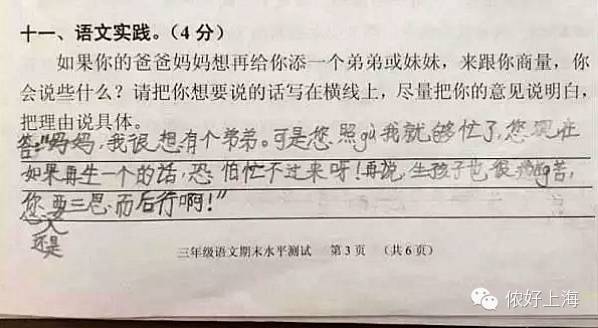 十一、语文实践。(4分)
如果你的爸爸妈妈想再给你添一个弟弟或妹妹，来跟你商量，你
会说些什么？请把你想要说的话写在横线上，尽量把你的意见说明白，
把理由说具体。
答:"妈妈,我很想有个弟弟。可是您照gù我就够忙了,您现在
如果再生一个的话,恐怕忙不过来呀!再说,生孩子也很苦,
您要三思而后行啊!"
还是
三年级语文期末水平测试 第3页 (共6页)
侬好上海